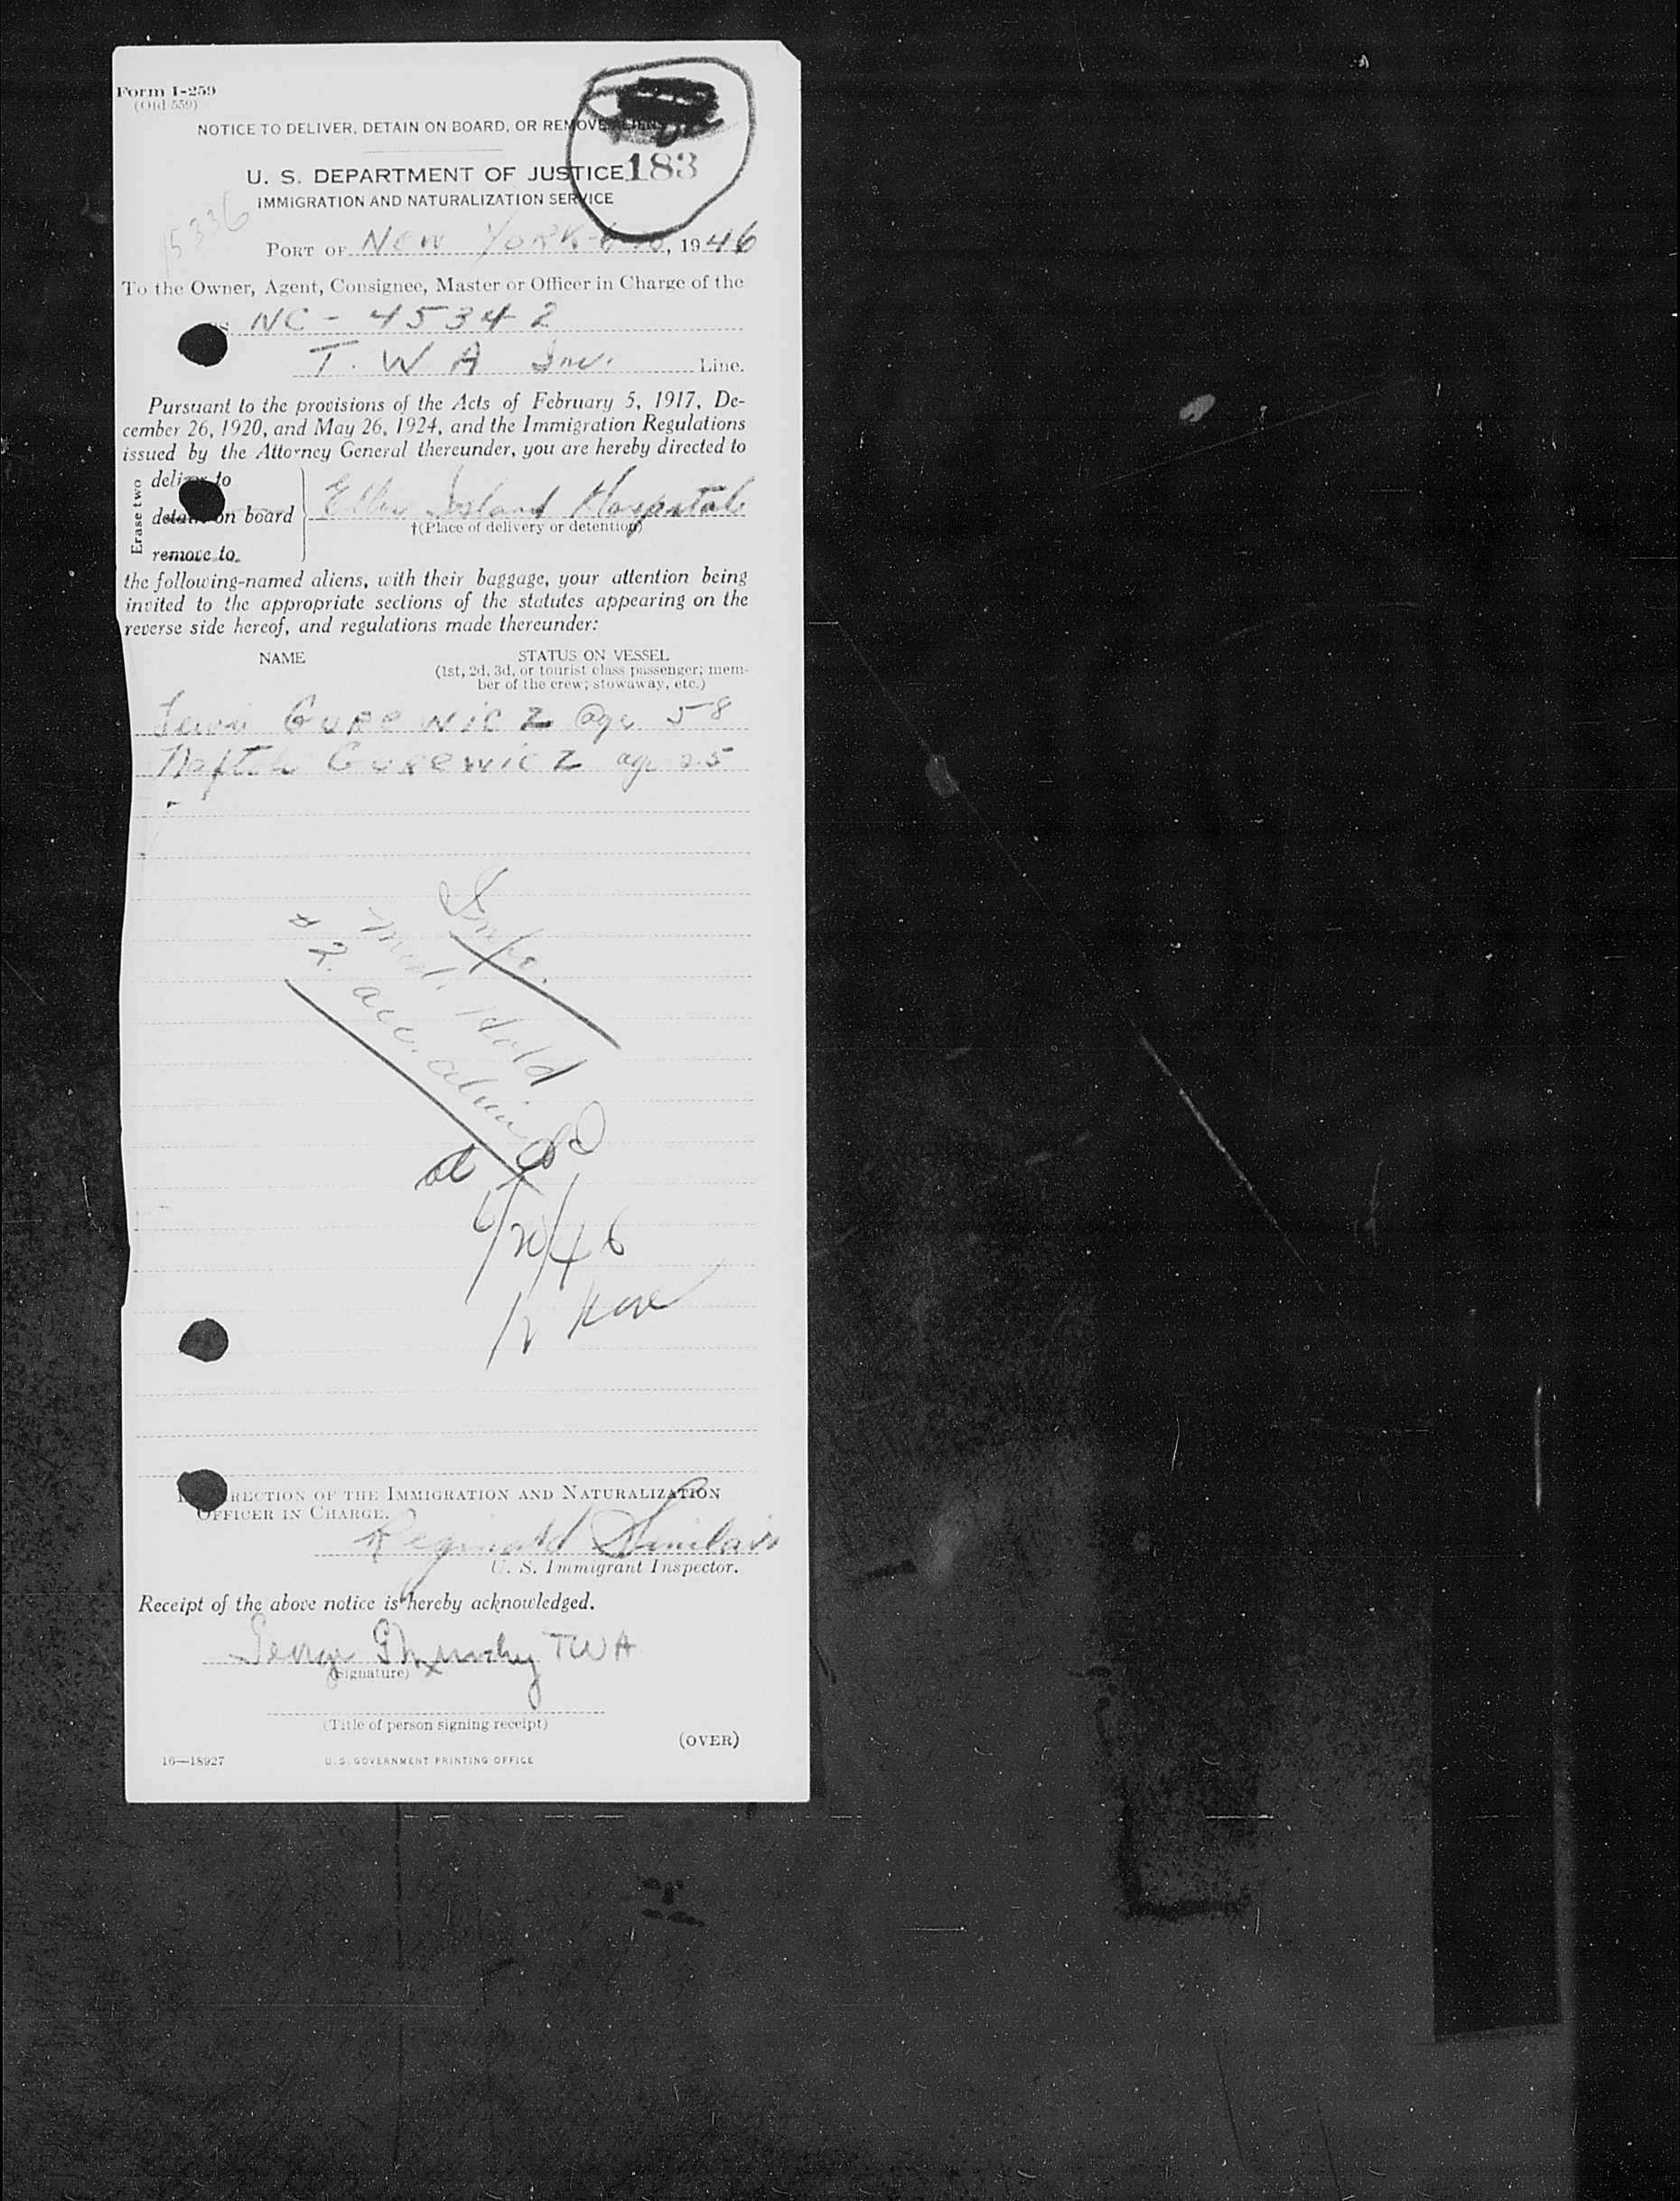 Form I-259
(Old 559)
NOTICE TO DELIVER, DETAIN ON BOARD, OR REMOVE ALIENS
U. S. DEPARTMENT OF JUSTICE 183
IMMIGRATION AND NATURALIZATION SERVICE
15336
PORT OF NEW YORK, 1946
To the Owner, Agent, Consignee, Master or Officer in Charge of the
NC-45342
T. W A Inc. Line.
Pursuant to the provisions of the Acts of February 5, 1917, De-
cember 26, 1920, and May 26, 1924, and the Immigration Regulations
issued by the Attorney General thereunder, you are hereby directed to
Erase two
deliver to
detain on board
Ellis Island Hospital
†(Place of delivery or detention)
remove to
the following-named aliens, with their baggage, your attention being
invited to the appropriate sections of the statutes appearing on the
reverse side hereof, and regulations made thereunder:
NAME STATUS ON VESSEL
(1st, 2d, 3d, or tourist class passenger; mem-
ber of the crew; stowaway, etc.)
GUREWICZ age 58
GUREWICZ age 25
Med. Hold
2. acc. alien
6/20/46
DIRECTION OF THE IMMIGRATION AND NATURALIZATION
OFFICER IN CHARGE.
Reginald Sinclair
U. S. Immigrant Inspector.
Receipt of the above notice is hereby acknowledged.
George TWA
(Signature)
(Title of person signing receipt)
(OVER)
16—18927 U. S. GOVERNMENT PRINTING OFFICE